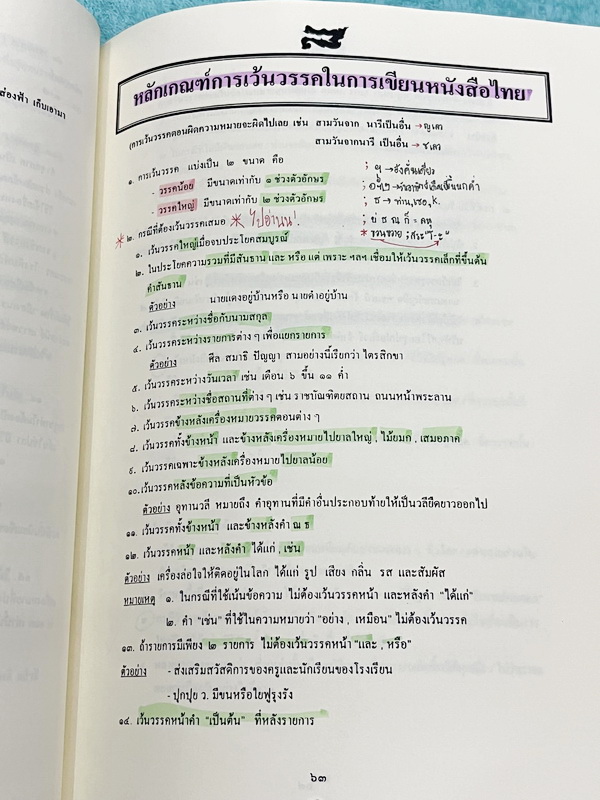 ส่องฟ้า เก็บเอามา
หลักเกณฑ์การเว้นวรรคในการเขียนหนังสือไทย
(การเว้นวรรคตอนผิดความหมายจะผิดไปเลย เช่น สามวันจาก นารีเป็นอื่น
สามวันจากนารี เป็นอื่น
๑. การเว้นวรรค แบ่งเป็น ๒ ขนาด คือ
- วรรคน้อย มีขนาดเท่ากับ ๑ ช่วงตัวอักษร
- วรรคใหญ่ มีขนาดเท่ากับ ๒ ช่วงตัวอักษร
* ๒. กรณีที่ต้องเว้นวรรคเสมอ * ไปอ่านน!
๑. เว้นวรรคใหญ่เมื่อจบประโยคสมบูรณ์
๒. ในประโยคความรวมที่มีสันธาน และ หรือ แต่ เพราะ ฯลฯ เชื่อมให้เว้นวรรคเล็กที่ขึ้นต้น
คำสันธาน
ตัวอย่าง นายแดงอยู่บ้านหรือ นายดำอยู่บ้าน
๓. เว้นวรรคระหว่างชื่อกับนามสกุล
๔. เว้นวรรคระหว่างรายการต่าง ๆ เพื่อแยกรายการ
ตัวอย่าง ศีล สมาธิ ปัญญา สามอย่างนี้เรียกว่า ไตรสิกขา
๕. เว้นวรรคระหว่างวันเวลา เช่น เดือน ๖ ขึ้น ๑๑ ค่ำ
๖. เว้นวรรคระหว่างชื่อสถานที่ต่าง ๆ เช่น ราชบัณฑิตยสถาน ถนนหน้าพระลาน
๗. เว้นวรรคข้างหลังเครื่องหมายวรรคตอนต่าง ๆ
๘. เว้นวรรคทั้งข้างหน้า และข้างหลังเครื่องหมายไปยาลใหญ่ , ไม้ยมก , เสมอภาค
๙. เว้นวรรคเฉพาะข้างหลังเครื่องหมายไปยาลน้อย
๑๐. เว้นวรรคหลังข้อความที่เป็นหัวข้อ
ตัวอย่าง อุทานวลี หมายถึง คำอุทานที่มีคำอื่นประกอบท้ายให้เป็นวลียืดยาวออกไป
๑๑. เว้นวรรคทั้งข้างหน้า และข้างหลังคำ ณ ธ
๑๒. เว้นวรรคหน้า และหลังคำ ได้แก่ , เช่น
ตัวอย่าง เครื่องล่อใจให้ติดอยู่ในโลก ได้แก่ รูป เสียง กลิ่น รส และสัมผัส
หมายเหตุ ๑. ในกรณีที่ใช้เน้นข้อความ ไม่ต้องเว้นวรรคหน้า และหลังคำ "ได้แก่"
๒. คำ "เช่น" ที่ใช้ในความหมายว่า "อย่าง , เหมือน" ไม่ต้องเว้นวรรค
๑๓. ถ้ารายการมีเพียง ๒ รายการ ไม่ต้องเว้นวรรคหน้า "และ , หรือ"
ตัวอย่าง - ส่งเสริมสวัสดิการของครูและนักเรียนของโรงเรียน
- ปุกปุย ว. มีขนหรือใยฟูรุงรัง
๑๔. เว้นวรรคหน้าคำ "เป็นต้น" ที่หลังรายการ
๖๓